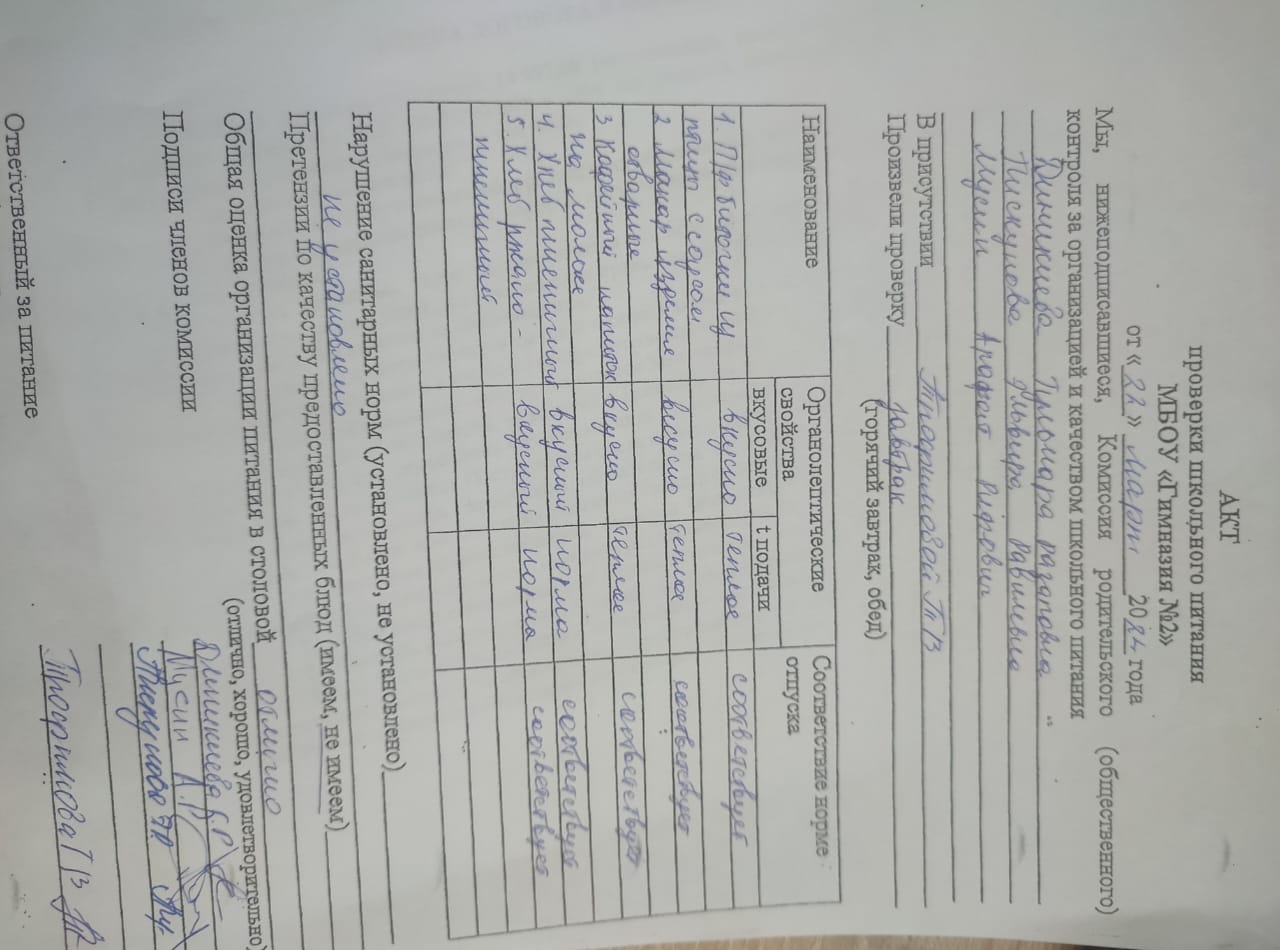 АКТ
проверки школьного питания
МБОУ «Гимназия №2»
от « 22 » март 2024 года
Мы, нижеподписавшиеся, Комиссия родительского (общественного)
контроля за организацией и качеством школьного питания
Гульнара
Пискунова Эльвира Равильевна
Мусин
В присутствии
Произвели проверку завтрак
(горячий завтрак, обед)
Наименование
Органолептические свойства
Соответствие норме отпуска
вкусовые
t подачи
1. из вкусно теплое соответствует
птицы с соусом
2 Макар изделия вкусно теплое соответствует
отварные
3 Кофейный напиток вкусно теплое соответствует
на молоке
4. Хлеб пшеничный вкусный норма соответствует
5. Хлеб ржано- вкусный норма соответствует
пшеничный
Нарушение санитарных норм (установлено, не установлено)
не установлено
Претензии по качеству предоставленных блюд (имеем, не имеем)
Общая оценка организации питания в столовой отлично
(отлично, хорошо, удовлетворительно)
Подписи членов комиссии
Мусин А.Р
Пискунова Э.Р.
Ответственный за питание